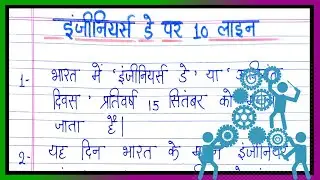 इंजीनियर्स डे पर 10 लाइन
1- भारत में 'इंजीनियर्स डे' या
दिवस' प्रतिवर्ष 15 सितंबर को
जाता है।
2- यह दिन भारत के इंजीनियर